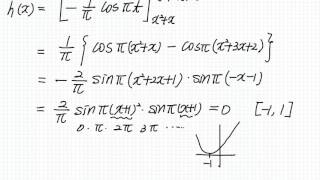 h(x) = [ - 1/π cos πt ]
x²+x
= 1/π { cos π(x²+x) - cos π(x²+3x+2) }
= - 2/π sin π(x²+2x+1) · sin π(-x-1)
= 2/π sin π(x+1)² · sin π(x+1) = 0 [-1, 1]
0 · π · 2π 3π ·····
-1